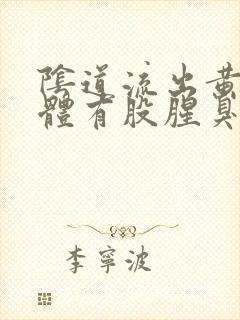 陰道流出黃
體有股腥臭
李寧波